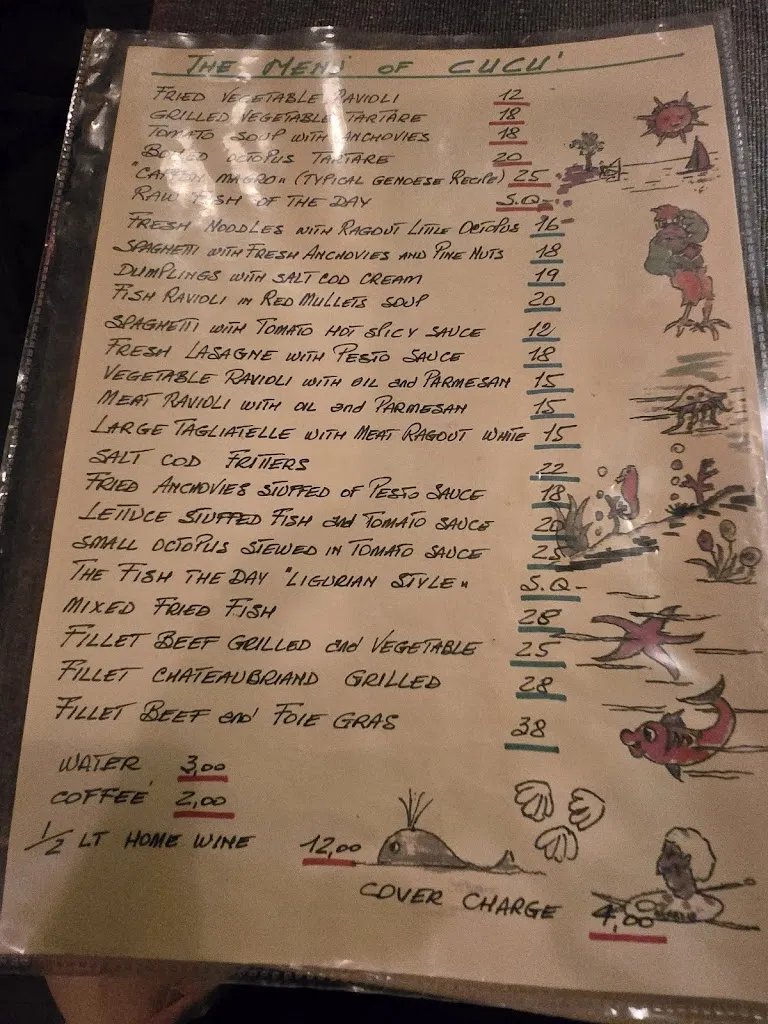 THE MENÙ OF CUCU'
FRIED VEGETABLE RAVIOLI 12
GRILLED VEGETABLE TARTARE 18
TOMATO SOUP WITH ANCHOVIES 18
BOILED OCTOPUS TARTARE 20
"CAPPON MAGRO" (TYPICAL GENOESE RECIPE) 25
RAW FISH OF THE DAY S.Q-
FRESH NOODLES WITH RAGOUT LITTLE OCTOPUS 16
SPAGHETTI WITH FRESH ANCHOVIES AND PINE NUTS 18
DUMPLINGS WITH SALT COD CREAM 19
FISH RAVIOLI IN RED MULLETS SOUP 20
SPAGHETTI WITH TOMATO HOT SPICY SAUCE 12
FRESH LASAGNE WITH PESTO SAUCE 18
VEGETABLE RAVIOLI WITH OIL and PARMESAN 15
MEAT RAVIOLI WITH OIL and PARMESAN 15
LARGE TAGLIATELLE WITH MEAT RAGOUT WHITE 15
SALT COD FRITTERS 22
FRIED ANCHOVIES STUFFED OF PESTO SAUCE 18
LETTUCE STUFFED FISH and TOMATO SAUCE 20
SMALL OCTOPUS STEWED IN TOMATO SAUCE 25
THE FISH THE DAY "LIGURIAN STYLE" S.Q-
MIXED FRIED FISH 28
FILLET BEEF GRILLED and VEGETABLE 25
FILLET CHATEAUBRIAND GRILLED 28
FILLET BEEF and FOIE GRAS 38
WATER 3,00
COFFEE' 2,00
1/2 LT HOME WINE 12,00
COVER CHARGE 4,00